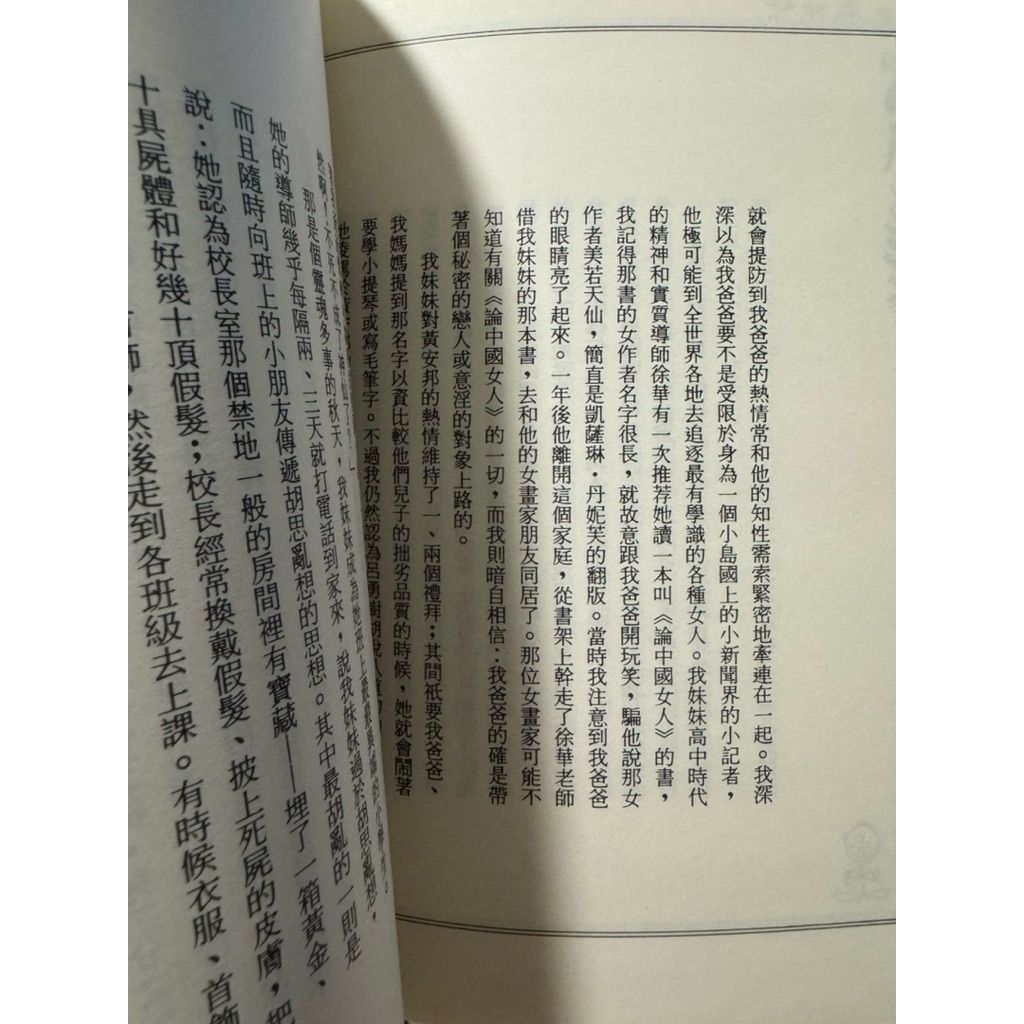 就會提防到我爸爸的熱情常和他的知性需索緊密地牽連在一起。我深
深以為我爸爸要不是受限於身為一個小島國上的小新聞界的小記者，
他極可能到全世界各地去追逐最有學識的各種女人。我妹妹高中時代
的精神和實質導師徐華有一次推荐她讀一本叫《論中國女人》的書，
我記得那書的女作者名字很長，就故意跟我爸爸開玩笑，騙他說那女
作者美若天仙，簡直是凱薩琳．丹妮芙的翻版。當時我注意到我爸爸
的眼睛亮了起來。一年後他離開這個家庭，從書架上幹走了徐華老師
借我妹妹的那本書，去和他的女畫家朋友同居了。那位女畫家可能不
知道有關《論中國女人》的一切，而我則暗自相信：我爸爸的確是帶
著個秘密的戀人或意淫的對象上路的。
我妹妹對黃安邦的熱情維持了一、兩個禮拜；其間祇要我爸爸、
我媽媽提到那名字以資比較他們兒子的拙劣品質的時候，她就會鬧著
要學小提琴或寫毛筆字。不過我仍然認為呂勇樹胡說八道
然啊！不死不成了神仙了？」
那是個靈魂多事的秋天，我妹妹成為她班上最
她的導師幾乎每隔兩、三天就打電話到家來，說我妹妹過於胡思亂想，
而且隨時向班上的小朋友傳遞胡思亂想的思想。其中最胡亂的一則是
說：她認為校長室那個禁地一般的房間裡有寶藏——埋了一箱黃金、
十具屍體和好幾十頂假髮；校長經常換戴假髮、披上死屍的皮膚，把
師，然後走到各班級去上課。有時候衣服、首飾